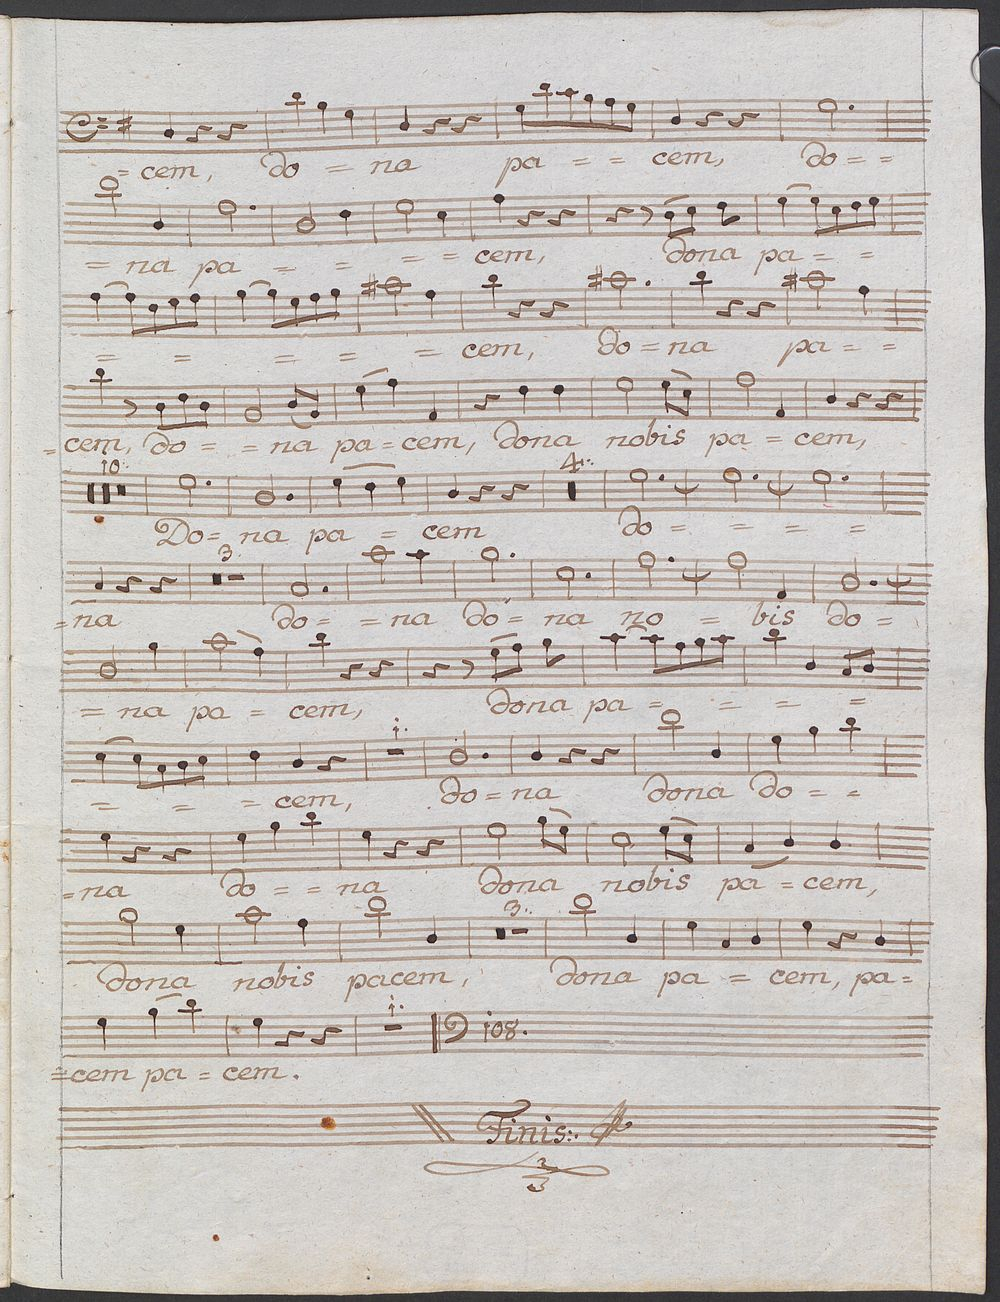 = cem, do = na pa = = cem, do = =
= na pa = = = = cem, dona pa = =
= = = = = cem, do = na pa = =
= cem, do = = na pa = cem, dona nobis pa = cem,
10. 4.
Do = na pa = cem do = = = =
3.
= na do = = na do = na no = bis do =
= na pa = cem, dona pa = = = =
1.
= = = cem, do = na dona do = =
= na do = = na dona nobis pa = cem,
3.
dona nobis pacem, dona pa = cem, pa =
1. 108.
= cem pa = cem.
Finis.